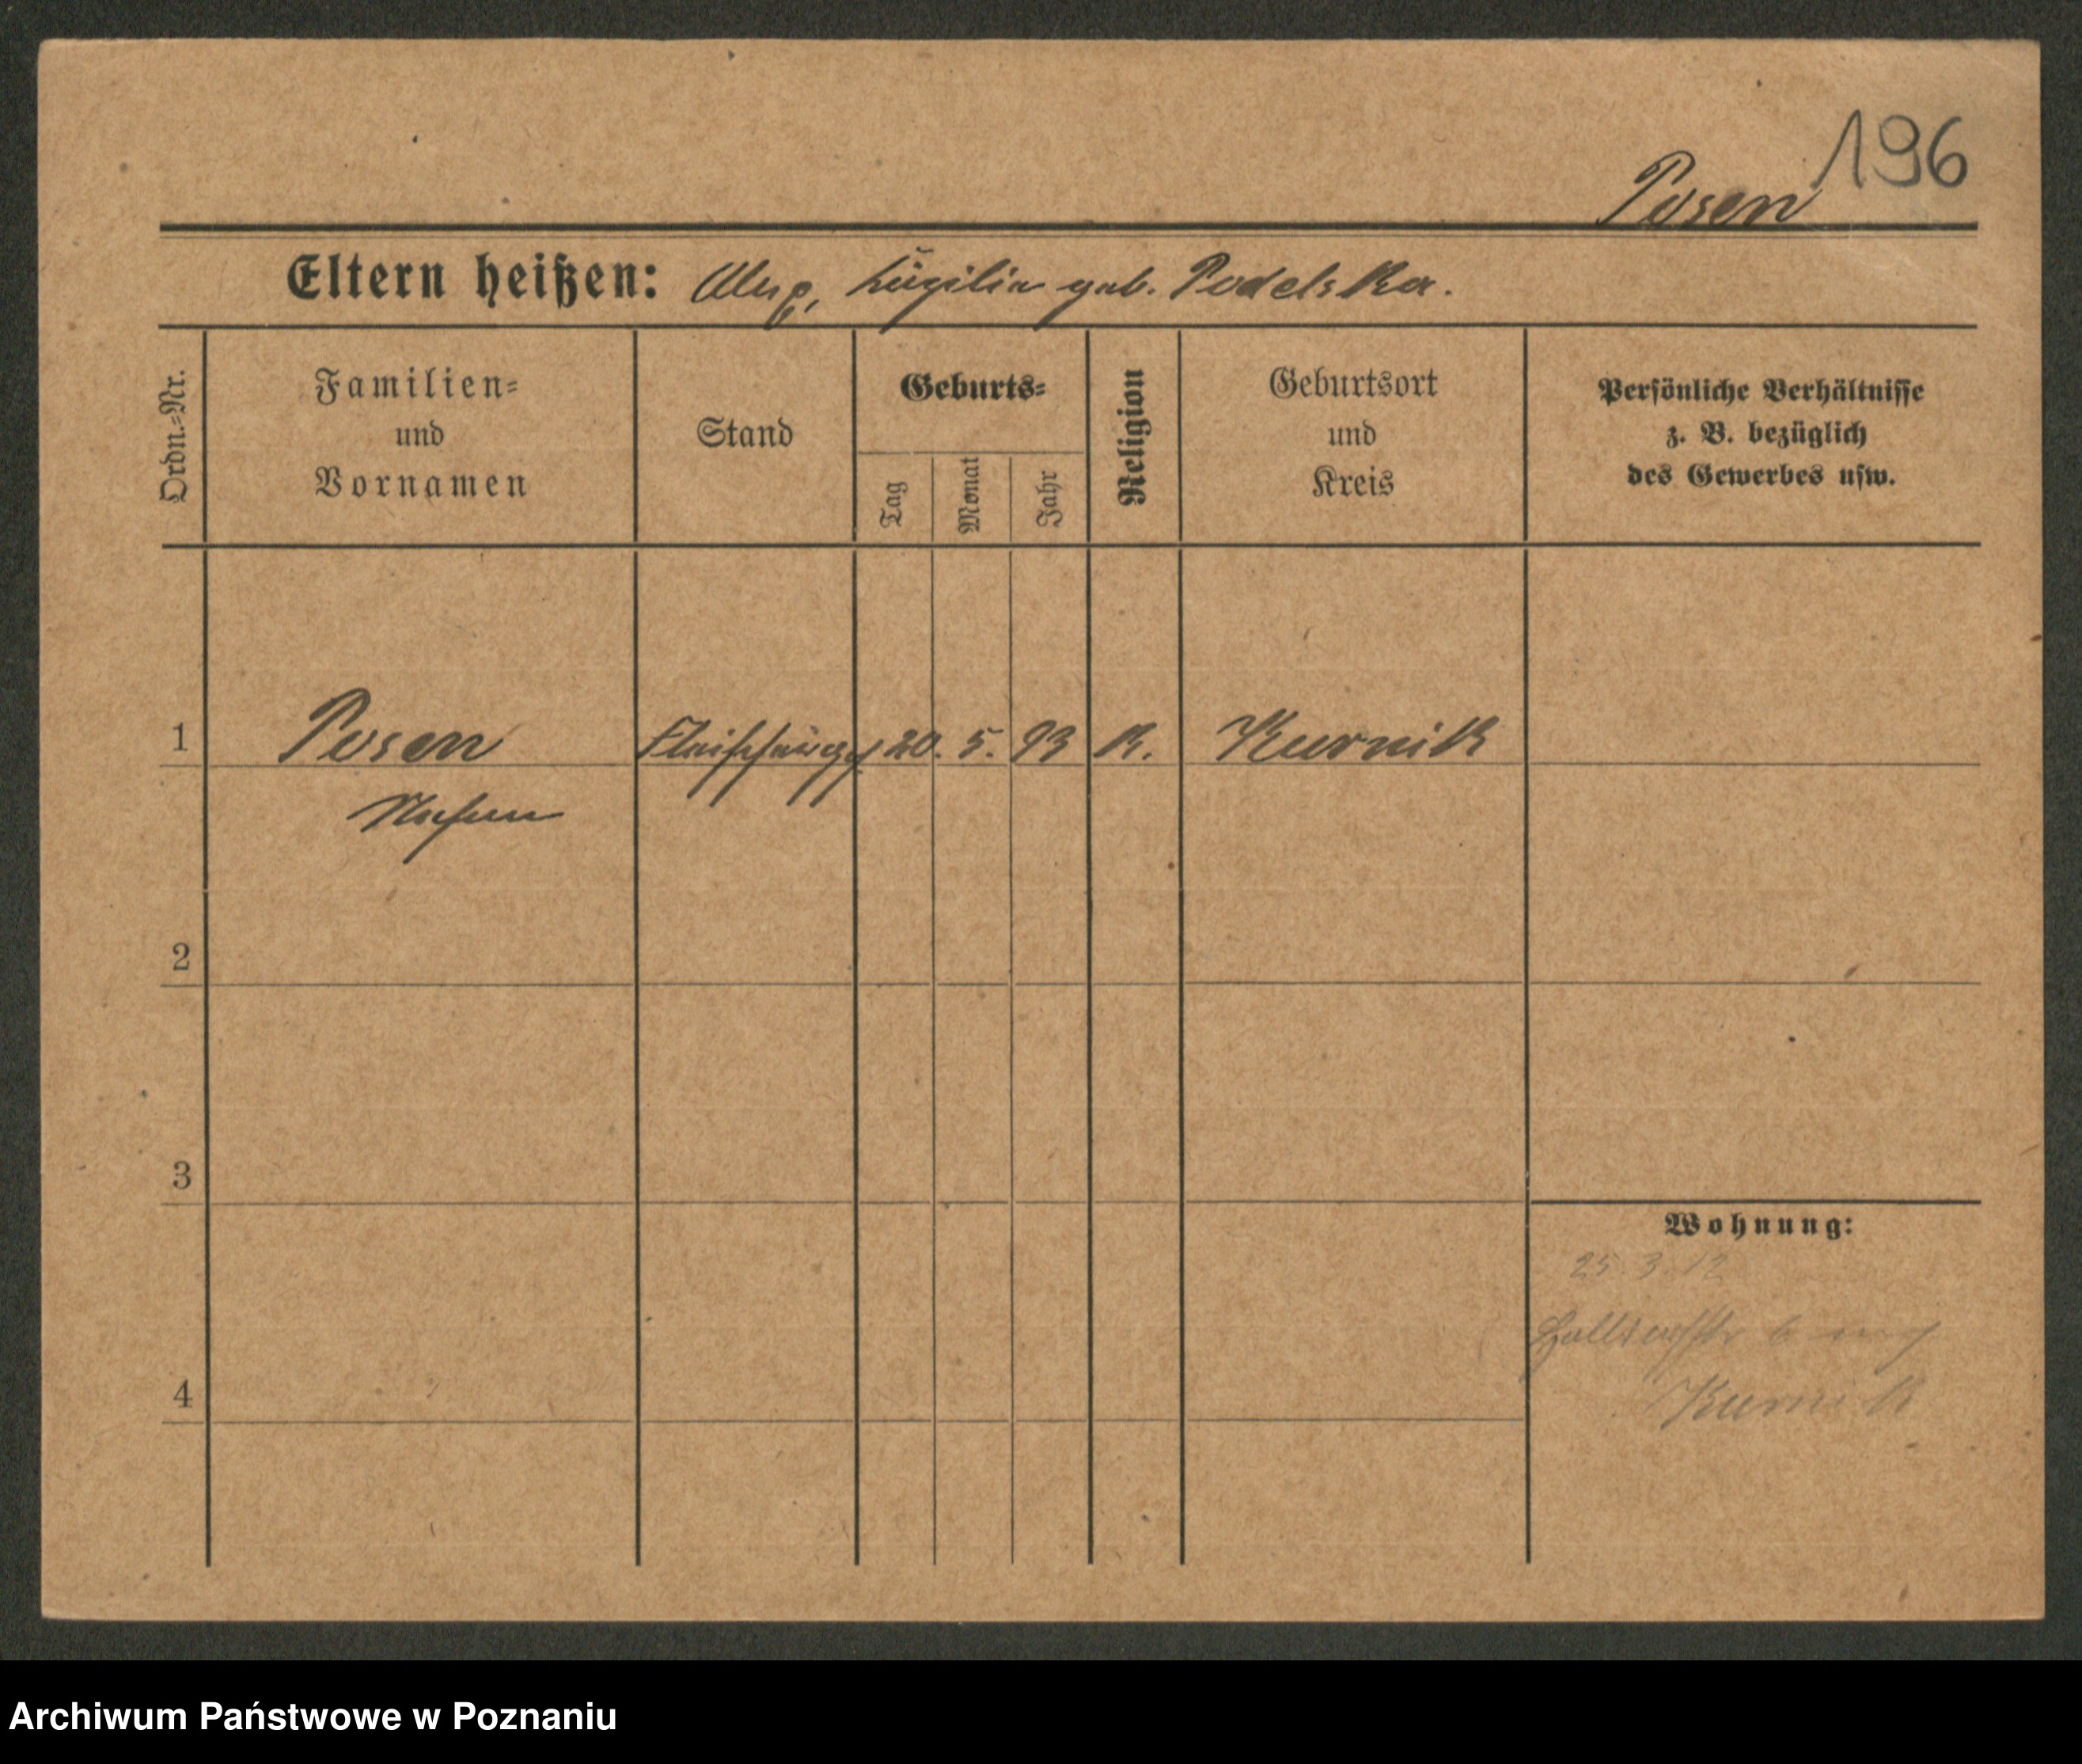 196
Posen
Eltern heißen: geb. Podelska.
Ordn.=Nr.
Familien=
und
Vornamen
Stand
Geburts=
Tag
Monat
Jahr
Religion
Geburtsort
und
Kreis
Persönliche Verhältnisse
z. B. bezüglich
des Gewerbes usw.
1 Posen 20. 5. 93 K. Kurnik
2
3
Wohnung:
25. 3. 12
4 Kurnik
Archiwum Państwowe w Poznaniu